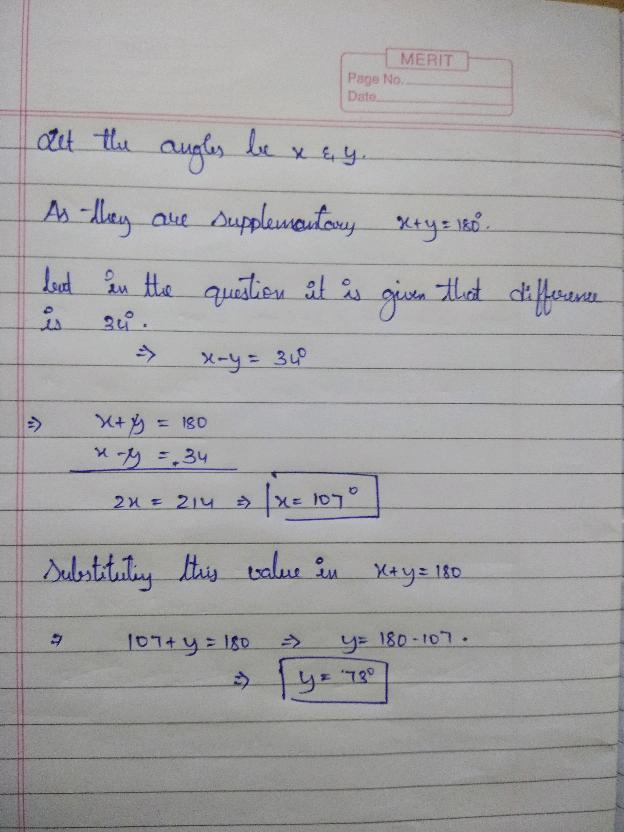 MERIT
Page No.
Date
Let the angles be x & y.
As they are supplementary x+y=180°.
but in the question it is given that difference
is 34°.
⇒ x-y = 34°
⇒ x+y = 180
x-y = 34
2x = 214 ⇒ x=107°
Substituting this value in x+y=180
⇒ 107+y=180 ⇒ y= 180-107.
⇒ y= 73°